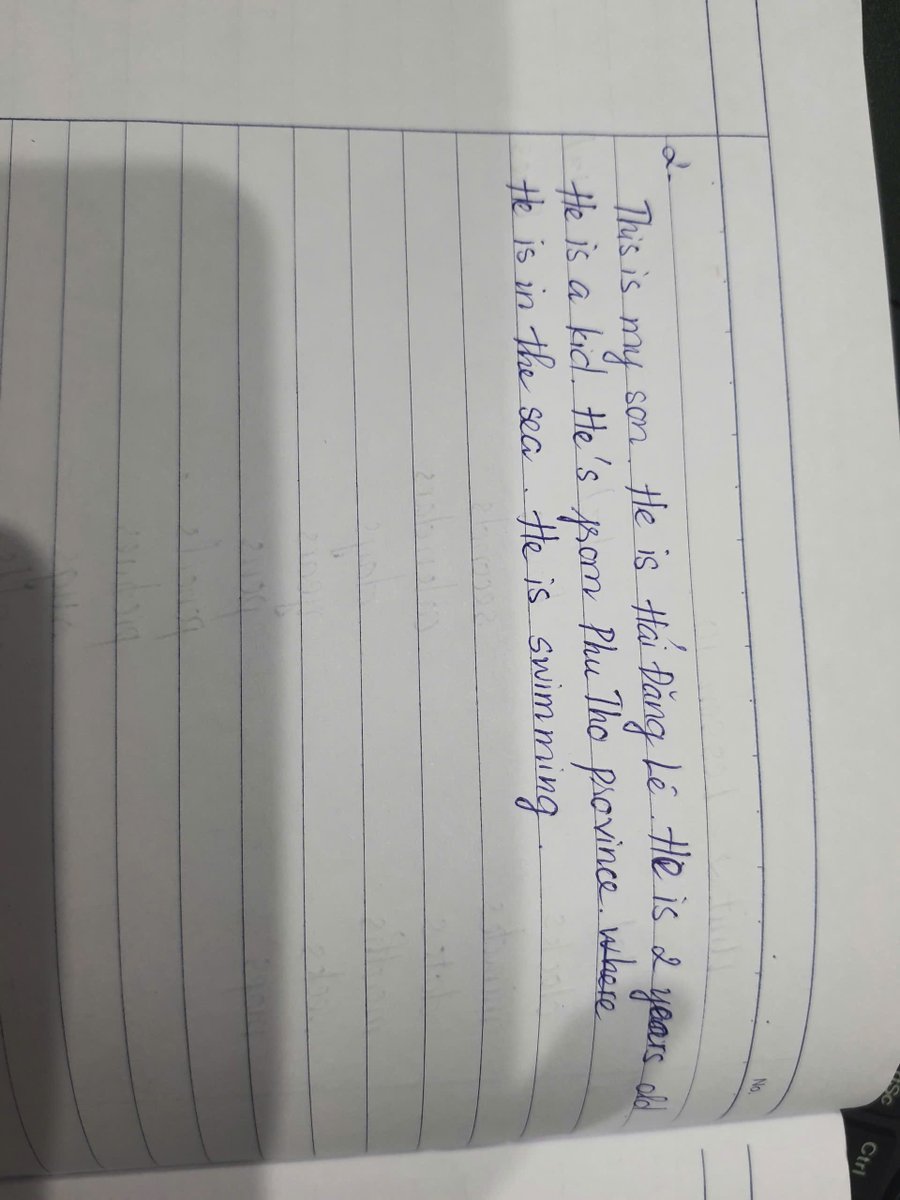 No.
2.
This is my son. He is Hải Đăng Lê. He is 2 years old
He is a kid. He's from Phu Tho province. where
He is in the sea. He is swimming.
Ctrl